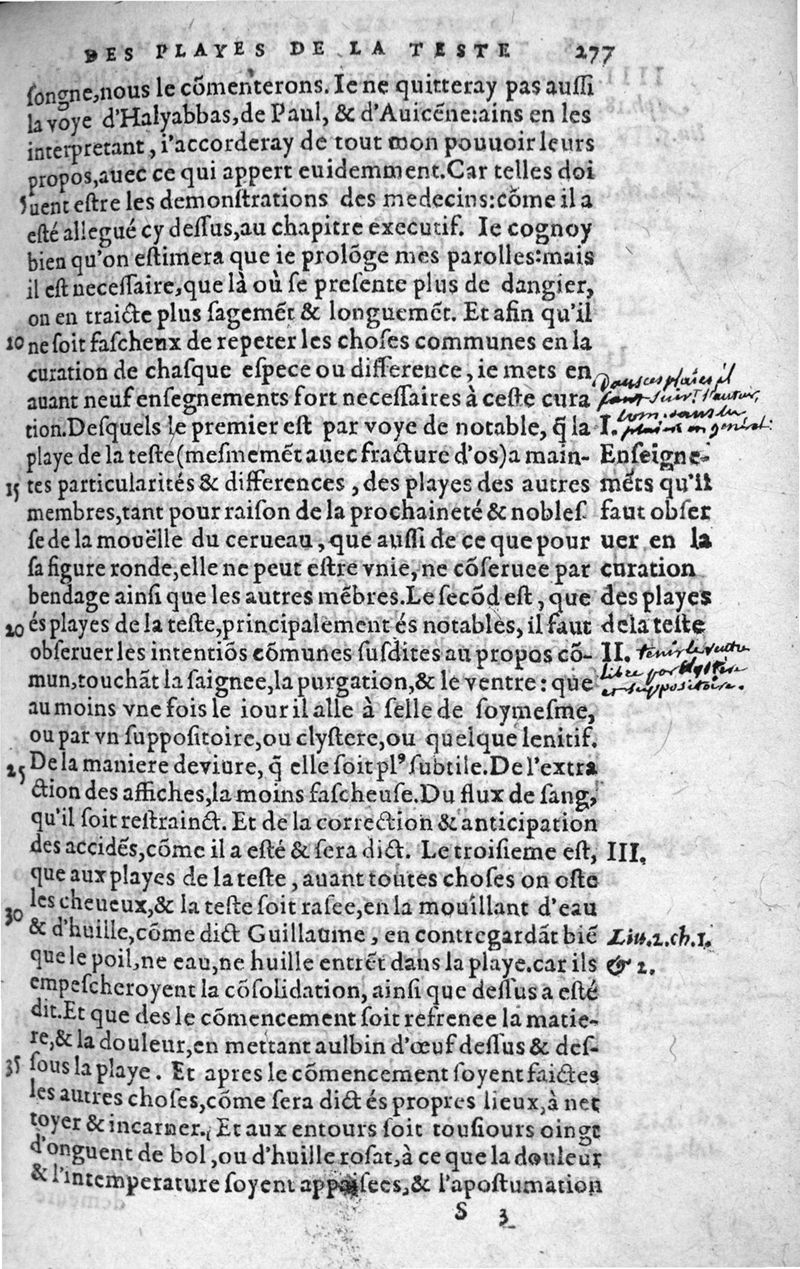 DES PLAYES DE LA TESTE 277
ſongne,nous le cõmenterons. Ie ne quitteray pas auſſi
la voye d'Halyabbas,de Paul, & d'Auicẽne:ains en les
interpretant, i'accorderay de tout mon pouuoir leurs
propos,auec ce qui appert euidemment.Car telles doi
5 uent eſtre les demonſtrations des medecins:cõme il a
eſté allegué cy deſſus,au chapitre executif. Ie cognoy
bien qu'on eſtimera que ie prolõge mes parolles:mais
il eſt neceſſaire,que là où ſe preſente plus de dangier,
on en traicte plus ſagemẽt & longuemẽt. Et afin qu'il
10 ne ſoit faſcheux de repeter les choſes communes en la
curation de chaſque eſpece ou difference, ie mets en
auant neuf enſegnements fort neceſſaires à ceſte cura
tion.Deſquels le premier eſt par voye de notable, q̃ la
playe de la teſte(meſmemẽt auec fracture d'os)a main-
15 tes particularités & differences, des playes des autres
membres,tant pour raiſon de la prochaineté & nobleſ
ſe de la mouëlle du cerueau, que auſſi de ce que pour
ſa figure ronde,elle ne peut eſtre vnie,ne cõſeruee par
bendage ainſi que les autres mẽbres.Le ſecõd eſt, que
20 és playes de la teſte,principalement és notables, il faut
obſeruer les intentiõs cõmunes ſuſdites au propos cõ-
mun,touchãt la ſaignee,la purgation,& le ventre: que
au moins vne fois le iour il alle à ſelle de ſoymeſme,
ou par vn ſuppoſitoire,ou clyſtere,ou quelque lenitif.
25 De la maniere de viure, q̃ elle ſoit plꝰ ſubtile.De l'extra
ction des affiches,la moins faſcheuſe.Du flux de ſang,
qu'il ſoit reſtrainct. Et de la correction & anticipation
des accidẽs,cõme il a eſté & ſera dict. Le troiſieme eſt,
que aux playes de la teſte, auant toutes choſes on oſte
30 les cheueux,& la teſte ſoit raſee,en la mouillant d'eau
& d'huille,cõme dict Guillaume, en contregardãt biẽ
que le poil,ne eau,ne huille entrẽt dans la playe.car ils
empeſcheroyent la cõſolidation, ainſi que deſſus a eſté
dit.Et que des le cõmencement ſoit refrenee la matie-
re,& la douleur,en mettant aulbin d'œuf deſſus & deſ-
35 ſous la playe. Et apres le cõmencement ſoyent faictes
les autres choſes,cõme ſera dict és propres lieux,à net
toyer & incarner. Et aux entours ſoit touſiours oingt
d'onguent de bol, ou d'huille roſat,à ce que la douleur
& l'intemperature ſoyent appaiſees,& l'apoſtumation
S 3
I. plaies en general:
Enſeigne-
mẽts qu'il
faut obſer
uer en la
curation
des playes
de la teſte
II.
par clyſtere
et suppositoire.
III.
Liu.2.ch.1.
& 2.